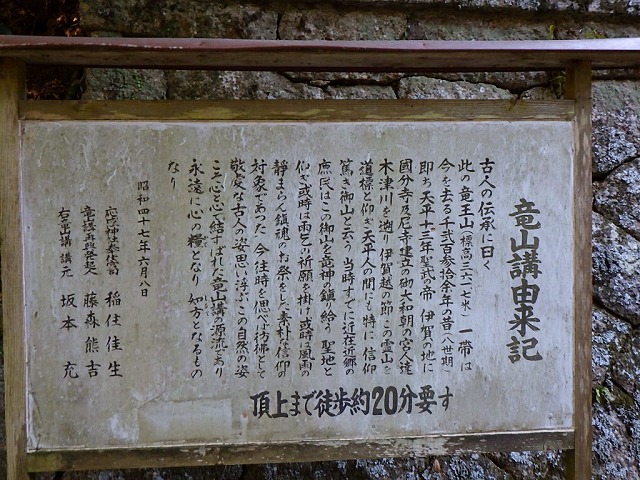 竜山講由来記
古人の伝承に曰く
此の竜王山（標高三六一七米）一帯は
今を去る千弐百参拾余年の昔（八世期）
即ち天平十三年聖武の帝 伊賀の地に
國分寺及尼寺建立の砌大和朝の宮人達
木津川を遡り伊賀越の節この霊山を
道標と仰ぎ天平人の間にも特に信仰
篤き御山と云う 当時すでに近在近郷の
庶民はこの御山を竜神の鎮り給う聖地と
仰ぎ或時は雨乞の祈願を掛け或時は風雨の
静まらん鎮魂のお祭をした素朴な信仰の
対象であった 今往時を思へば彷彿として
敬虔な古人の姿思い浮ぶこの自然の姿
こそ心と心で結ばれた竜山講の源流であり
永遠に心の糧となり 知方となるもの
なり
昭和四十七年六月八日
稲住佳生
竜山講再興発起人 藤森熊吉
右出講講元 坂本充
頂上まで徒歩約20分要す